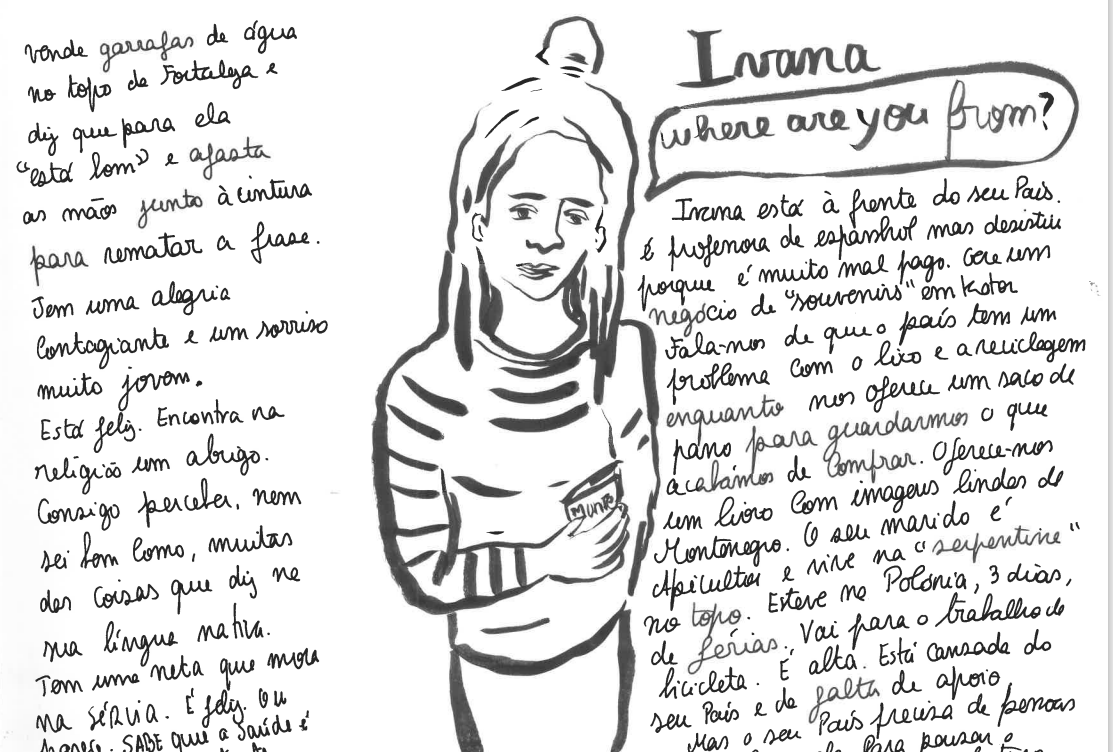 vende garrafas de água
no topo da Fortaleza e
diz que para ela
"está bom" e afasta
as mãos junto à cintura
para rematar a frase.
Tem uma alegria
contagiante e um sorriso
muito jovem.
Está feliz. Encontra na
religião um abrigo.
Consigo perceber, nem
sei bem como, muitas
das coisas que diz na
sua língua nativa.
Tem uma neta que mora
na SÉRVIA. É feliz. OU
SABE que a Saúde é
Ivana
where are you from?
Ivana está à frente do seu País.
É professora de espanhol mas desistiu
porque é muito mal pago. Gere um
negócio de "souvenirs" em Kotor
Fala-nos de que o país tem um
problema com o lixo e a reciclagem
enquanto nos oferece um saco de
pano para guardarmos o que
acabámos de comprar. Oferece-nos
um livro com imagens lindas de
Montenegro. O seu marido é
Apicultor e vive na "serpentine"
no topo. Esteve na Polónia, 3 dias,
de férias. Vai para o trabalho de
bicicleta. É alta. Está cansada do
seu País e da falta de apoio
Mas o seu País precisa de pessoas
para pousar o